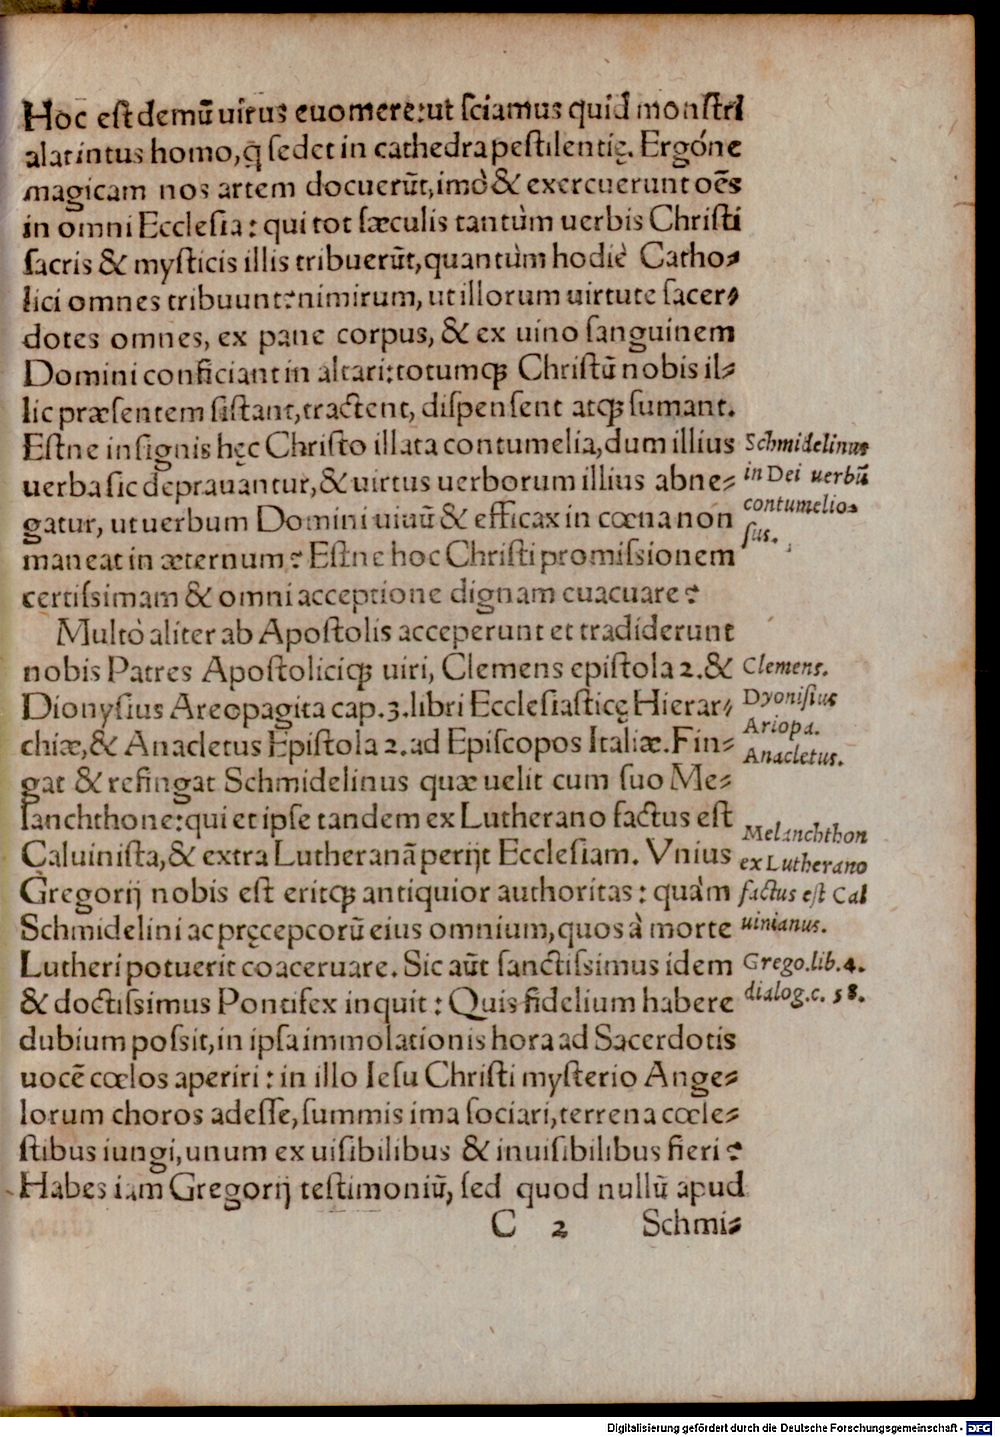 Hoc est demū uirus euomere: ut sciamus quid monstri
alat intus homo, q̄ sedet in cathedra pestilentię. Ergóne
magicam nos artem docuerūt, imò & exercuerunt oēs
in omni Ecclesia: qui tot sæculis tantùm uerbis Christi
sacris & mysticis illis tribuerūt, quantùm hodiè Catho⸗
lici omnes tribuunt? nimirum, ut illorum uirtute sacer⸗
dotes omnes, ex pane corpus, & ex uino sanguinem
Domini conficiant in altari: totumq́ꝫ Christū nobis il⸗
lic præsentem sistant, tractent, dispensent atq́ꝫ sumant.
Estne insignis hęc Christo illata contumelia, dum illius
uerba sic deprauantur, & uirtus uerborum illius abne⸗
gatur, ut uerbum Domini uiuū & efficax in cœna non
maneat in æternum? Estne hoc Christi promissionem
certissimam & omni acceptione dignam euacuare?
Schmidelinus
in Dei uerbū
contumelio⸗
sus.
Multò aliter ab Apostolis acceperunt et tradiderunt
nobis Patres Apostoliciq́ꝫ uiri, Clemens epistola 2. &
Dionysius Areopagita cap. 3. libri Ecclesiasticę Hierar⸗
chiæ, & Anacletus Epistola 2. ad Episcopos Italiæ. Fin⸗
gat & refingat Schmidelinus quæ uelit cum suo Me⸗
lanchthone: qui et ipse tandem ex Lutherano factus est
Caluinista, & extra Lutheranā perijt Ecclesiam. Vnius
Gregorij nobis est eritq́ꝫ antiquior authoritas: quàm
Schmidelini ac pręceptorū eius omnium, quos à morte
Lutheri potuerit coaceruare. Sic aūt sanctissimus idem
& doctissimus Pontifex inquit: Quis fidelium habere
dubium possit, in ipsa immolationis hora ad Sacerdotis
uocē cœlos aperiri: in illo Iesu Christi mysterio Ange⸗
lorum choros adesse, summis ima sociari, terrena cœle⸗
stibus iungi, unum ex uisibilibus & inuisibilibus fieri?
Habes iam Gregorij testimoniū, sed quod nullū apud
Clemens.
Dyonisius
Ariopa.
Anacletus.
Melanchthon
ex Lutherano
factus est Cal
uinianus.
Grego. lib. 4.
dialog. c. 58.
C 2 Schmi⸗
Digitalisierung gefördert durch die Deutsche Forschungsgemeinschaft - DFG